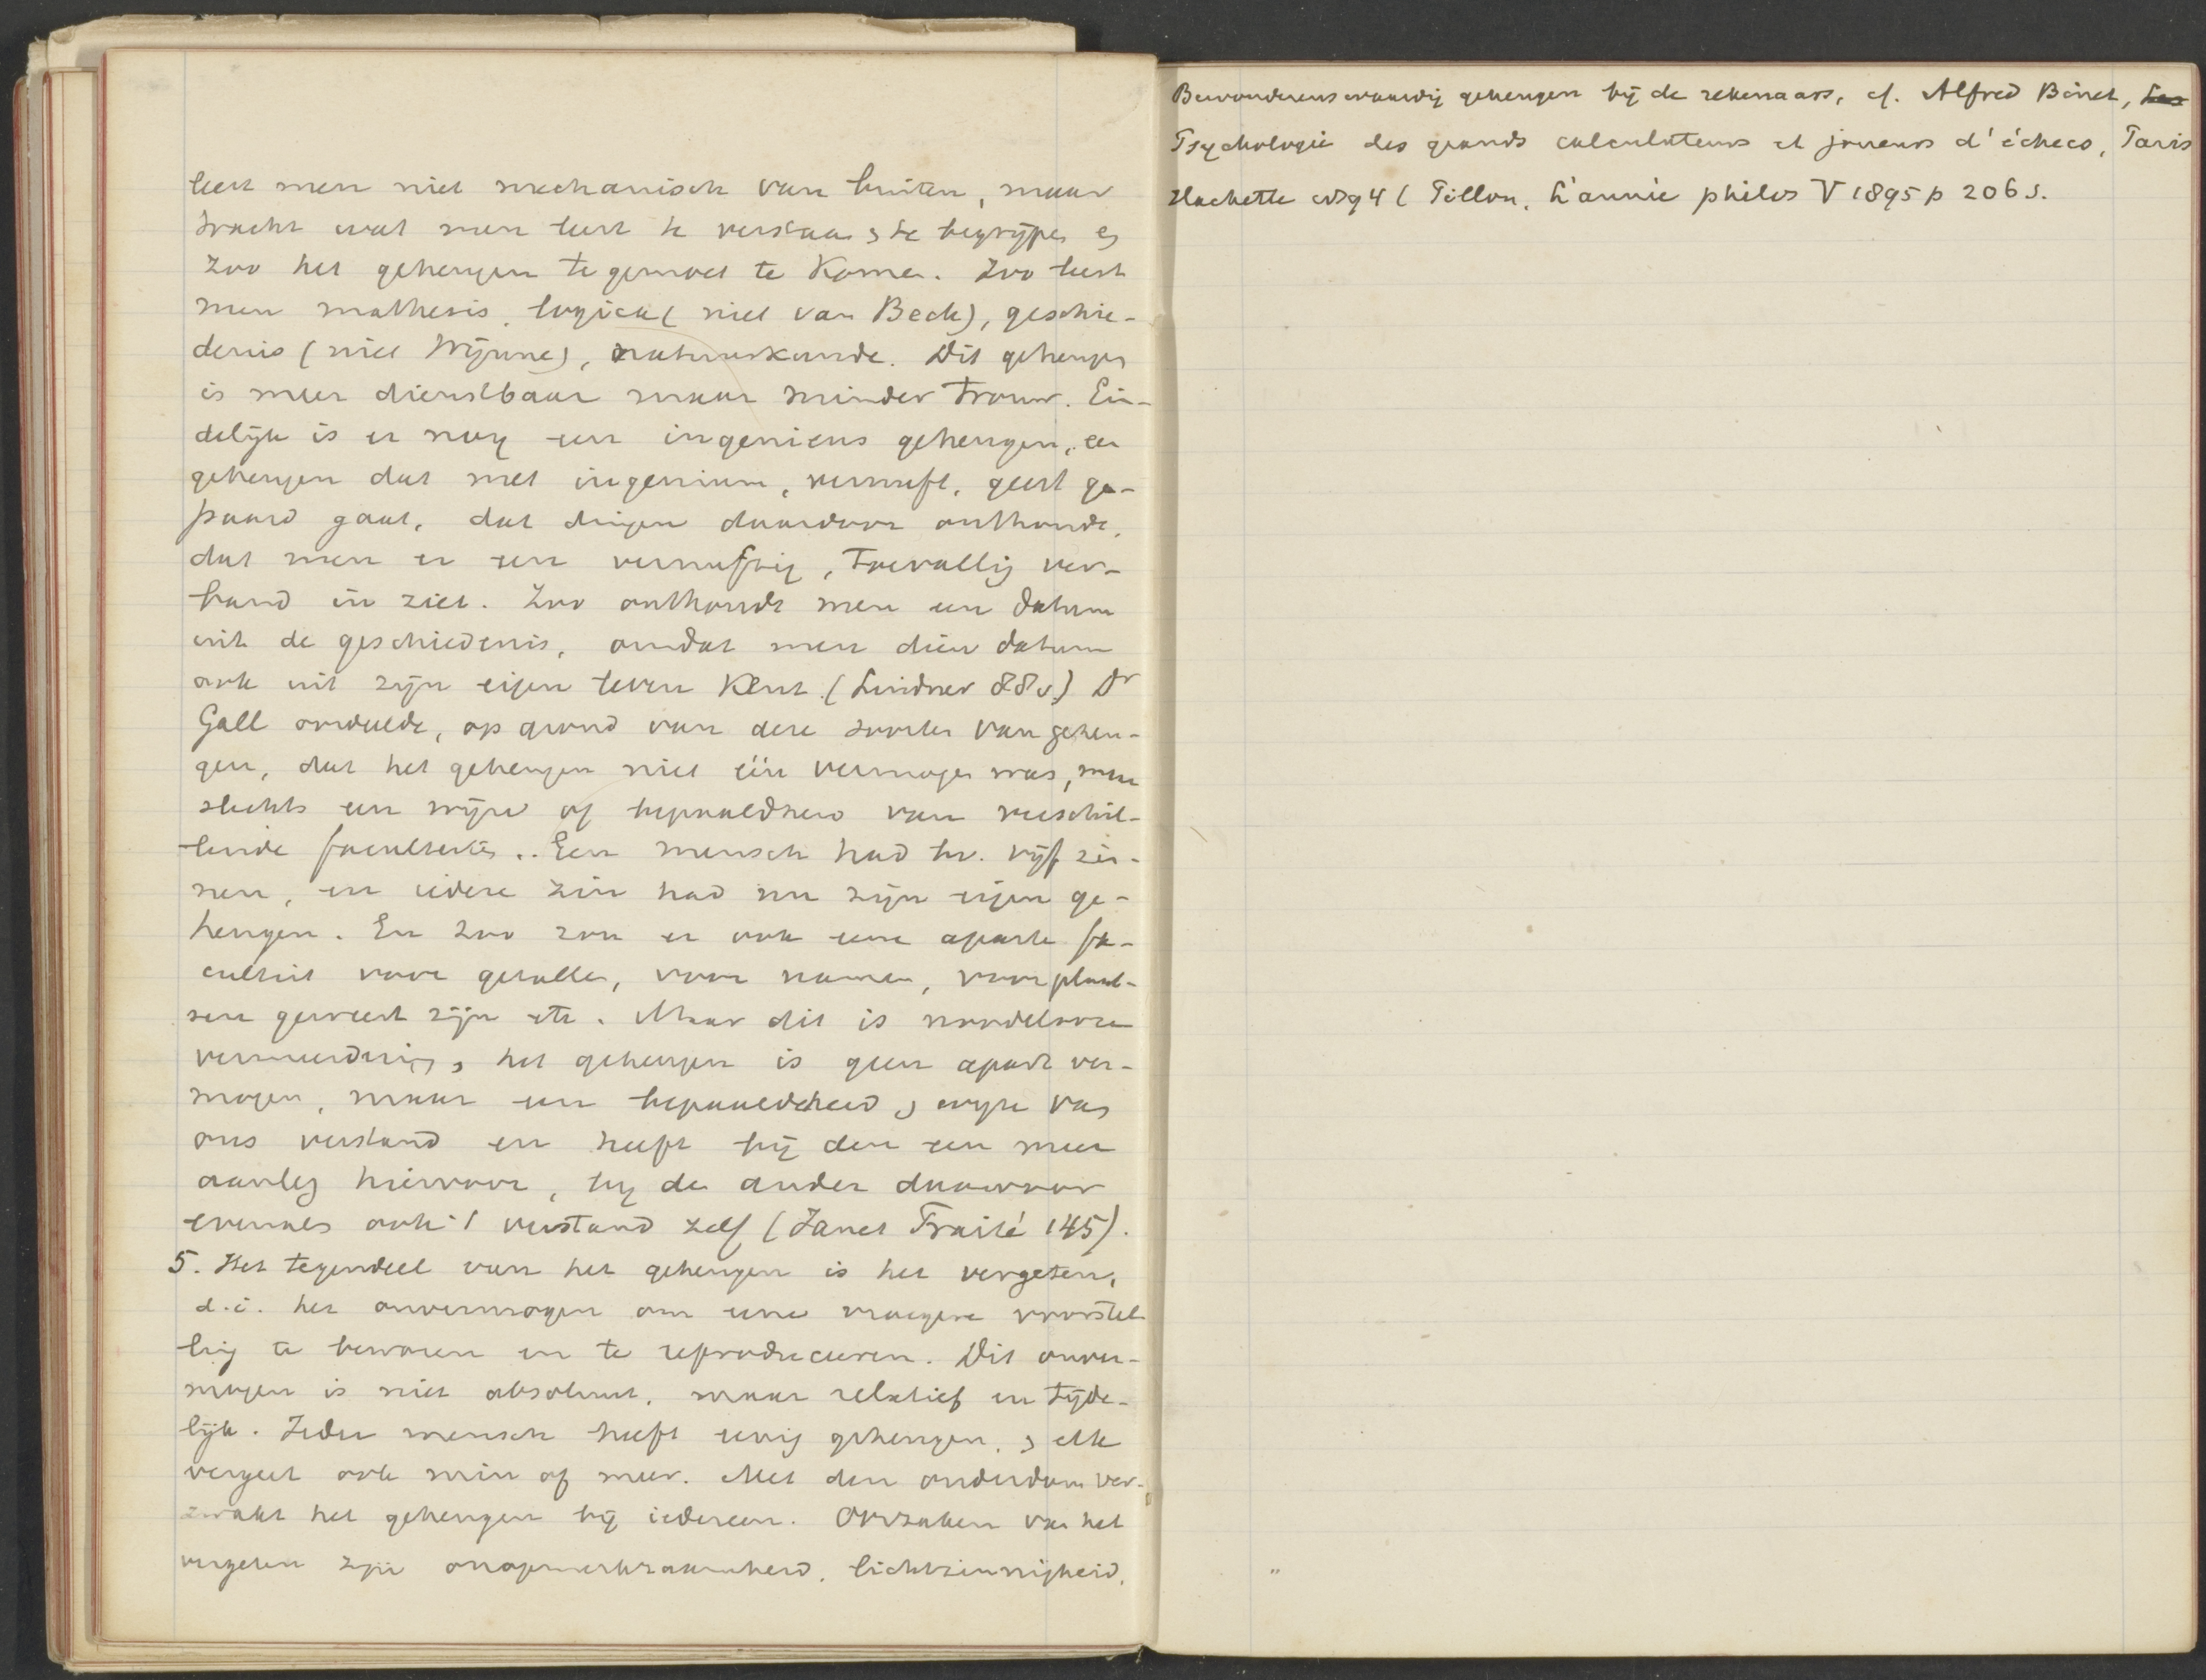 leert men niet mechanisch van buiten, maar
tracht wat men leert te verstaan, te begrijpen en
zoo het geheugen tegemoet te komen. Zoo leert
men mathesis, logica (niet van Beck), geschie-
denis (niet Wijnne), natuurkunde. Dit geheugen
is meer dienstbaar maar minder trouw. Ein-
delijk is er nog een ingenieus geheugen, een
geheugen dat met ingenium, vernuft, geest ge-
paard gaat, dat dingen daardoor onthoudt,
dat men er een vernuftig, toevallig ver-
band in ziet. Zoo onthoudt men een datum
uit de geschiedenis, omdat men dien datum
ook uit zijn eigen leven kent. (Lindner 88v.) Dr
Gall oordeelde, op grond van deze soorten van geheu-
gen, dat het geheugen niet één vermogen was, maar
slechts een wijze of bepaaldheid van verschil-
lende faculteiten.. Een mensch had bv. vijf zin-
nen, en iedere zin had nu zijn eigen ge-
heugen. En zoo zou er ook eene aparte fa-
culteit voor getallen, voor namen, voor plaat-
sen geweest zijn etc. Maar dit is noodelooze
vermeerdering, het geheugen is geen apart ver-
mogen, maar een bepaaldheid, wijze van
ons verstand en heeft bij den een meer
aanleg hiervoor, bij de ander daarvoor
evenals ook 't verstand zelf (Janet Traité 145).
5. Het tegendeel van het geheugen is het vergeten,
d.i. het onvermogen om eene vroegere voorstel-
ling te bewaren en te reproduceeren. Dit onver-
mogen is niet absoluut, maar relatief en tijde-
lijk. Ieder mensch heeft eenig geheugen, en elk
vergeet ook min of meer. Met den ouderdom ver-
zwakt het geheugen bij iedereen. Oorzaken van het
vergeten zijn onopmerkzaamheid, lichtzinnigheid,
Bewonderenswaardig geheugen bij de rekenaars, cf. Alfred Binet, Les
Psychologie des grands calculateurs et joueurs d'échecs, Paris
Hachette 1894 (Pillon, L'année philos V 1895 p 206 s.